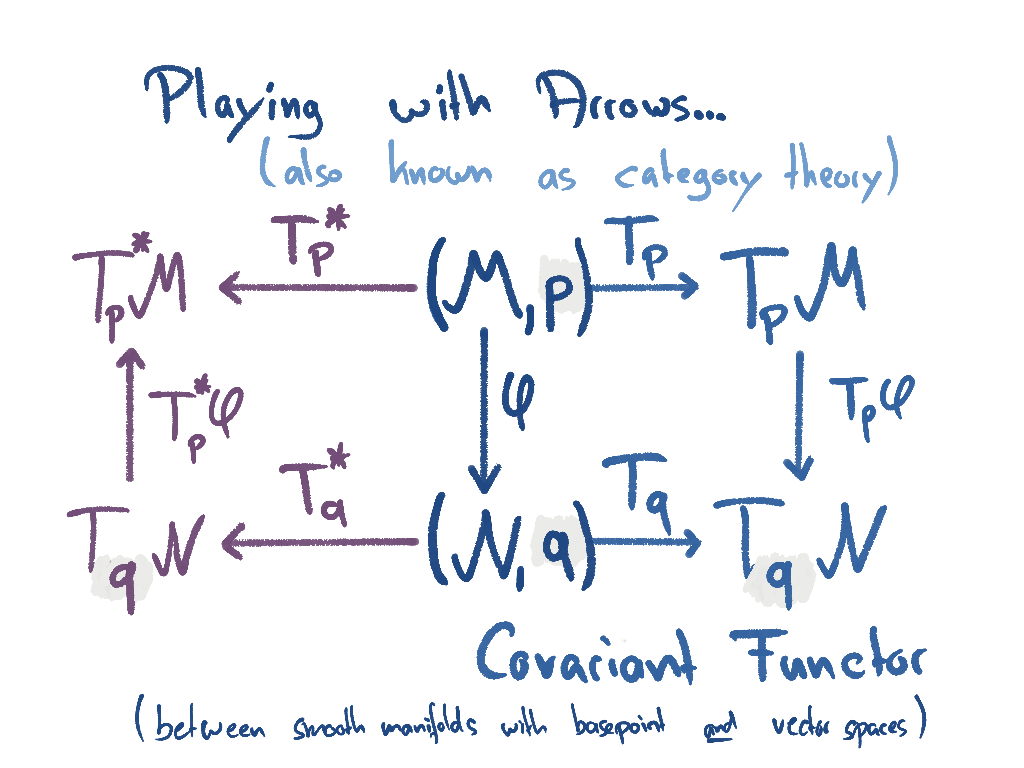 Playing with Arrows...
(also known as category theory)
T_p^* T_p
T_p^*M (M,p) T_pM
T_p^*φ φ T_pφ
T_q^* T_q
T_qN (N,q) T_qN
Covariant Functor
(between smooth manifolds with basepoint and vector spaces)